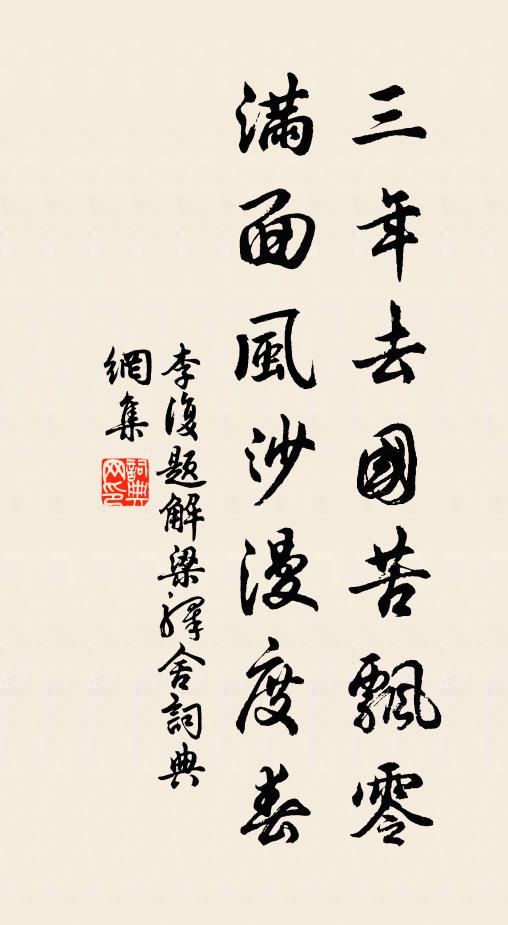 三年去國苦飄零
滿面風沙漫度春
李復題解梁驛舍詞典
網集
詞典網印